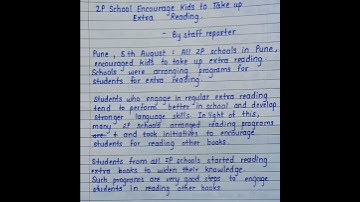 ZP School Encourage Kids to Take up
Extra Reading.
- By staff reporter
Pune, 5th August : All ZP schools in Pune,
encouraged kids to take up extra reading.
Schools were arranging programs for
students for extra reading.
Students who engage in regular extra reading
tend to perform better in school and develop
stronger language skills. In light of this,
many ZP schools arranged reading programs
are t and took initiatives to encourage
students for reading other books.
Students from all ZP schools started reading
extra books to widen their knowledge.
Such programs are very good steps to engage
students in reading other books.